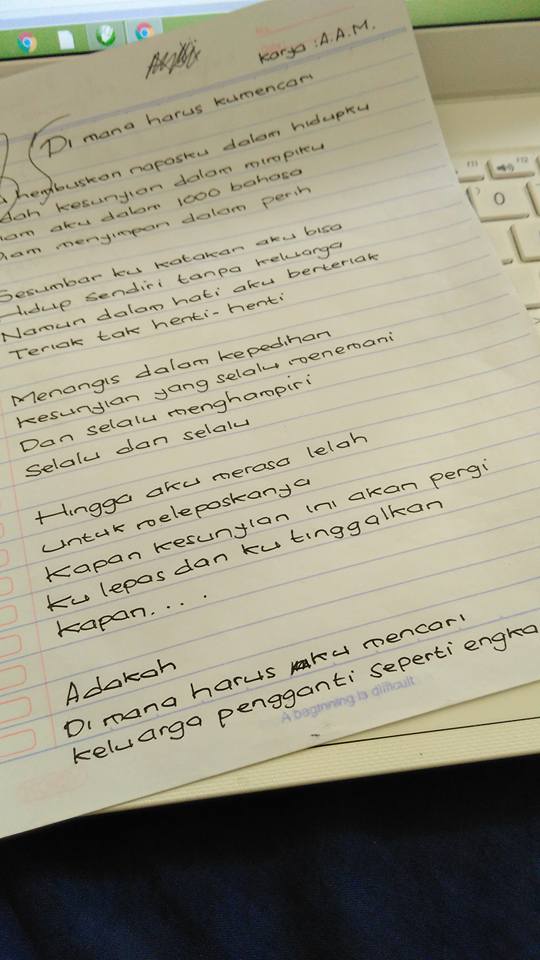 Karya : A.A.M.
Di mana harus kumencari
hembuskan napasku dalam hidupku
kesunyian dalam mimpiku
aku dalam 1000 bahasa
menyimpan dalam perih
Sesumbar ku katakan aku bisa
Hidup sendiri tanpa keluarga
Namun dalam hati aku berteriak
Teriak tak henti-henti
Menangis dalam kepedihan
Kesunyian yang selalu menemani
Dan selalu menghampiri
Selalu dan selalu
Hingga aku merasa lelah
untuk meleposkanya
Kapan kesunyian ini akan pergi
Ku lepas dan ku tinggalkan
Kapan....
Adakah
Di mana harus ku mencari
keluarga pengganti seperti engka
A beginning is difficult
0